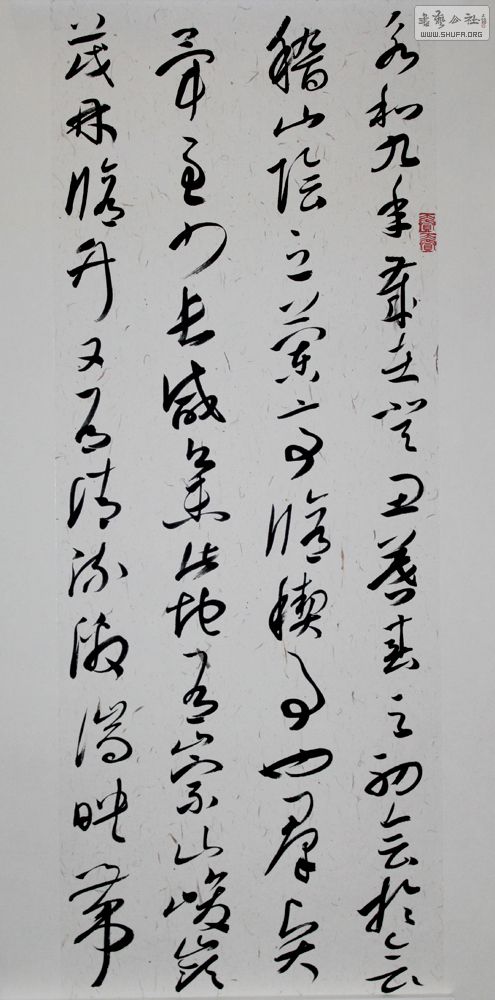 永和九年歲在癸丑暮春之初會於會
稽山陰之蘭亭脩稧事也羣賢
畢至少長咸集此地有崇山峻嶺
茂林脩竹又有清流激湍映帶
WWW.SHUFA.ORG